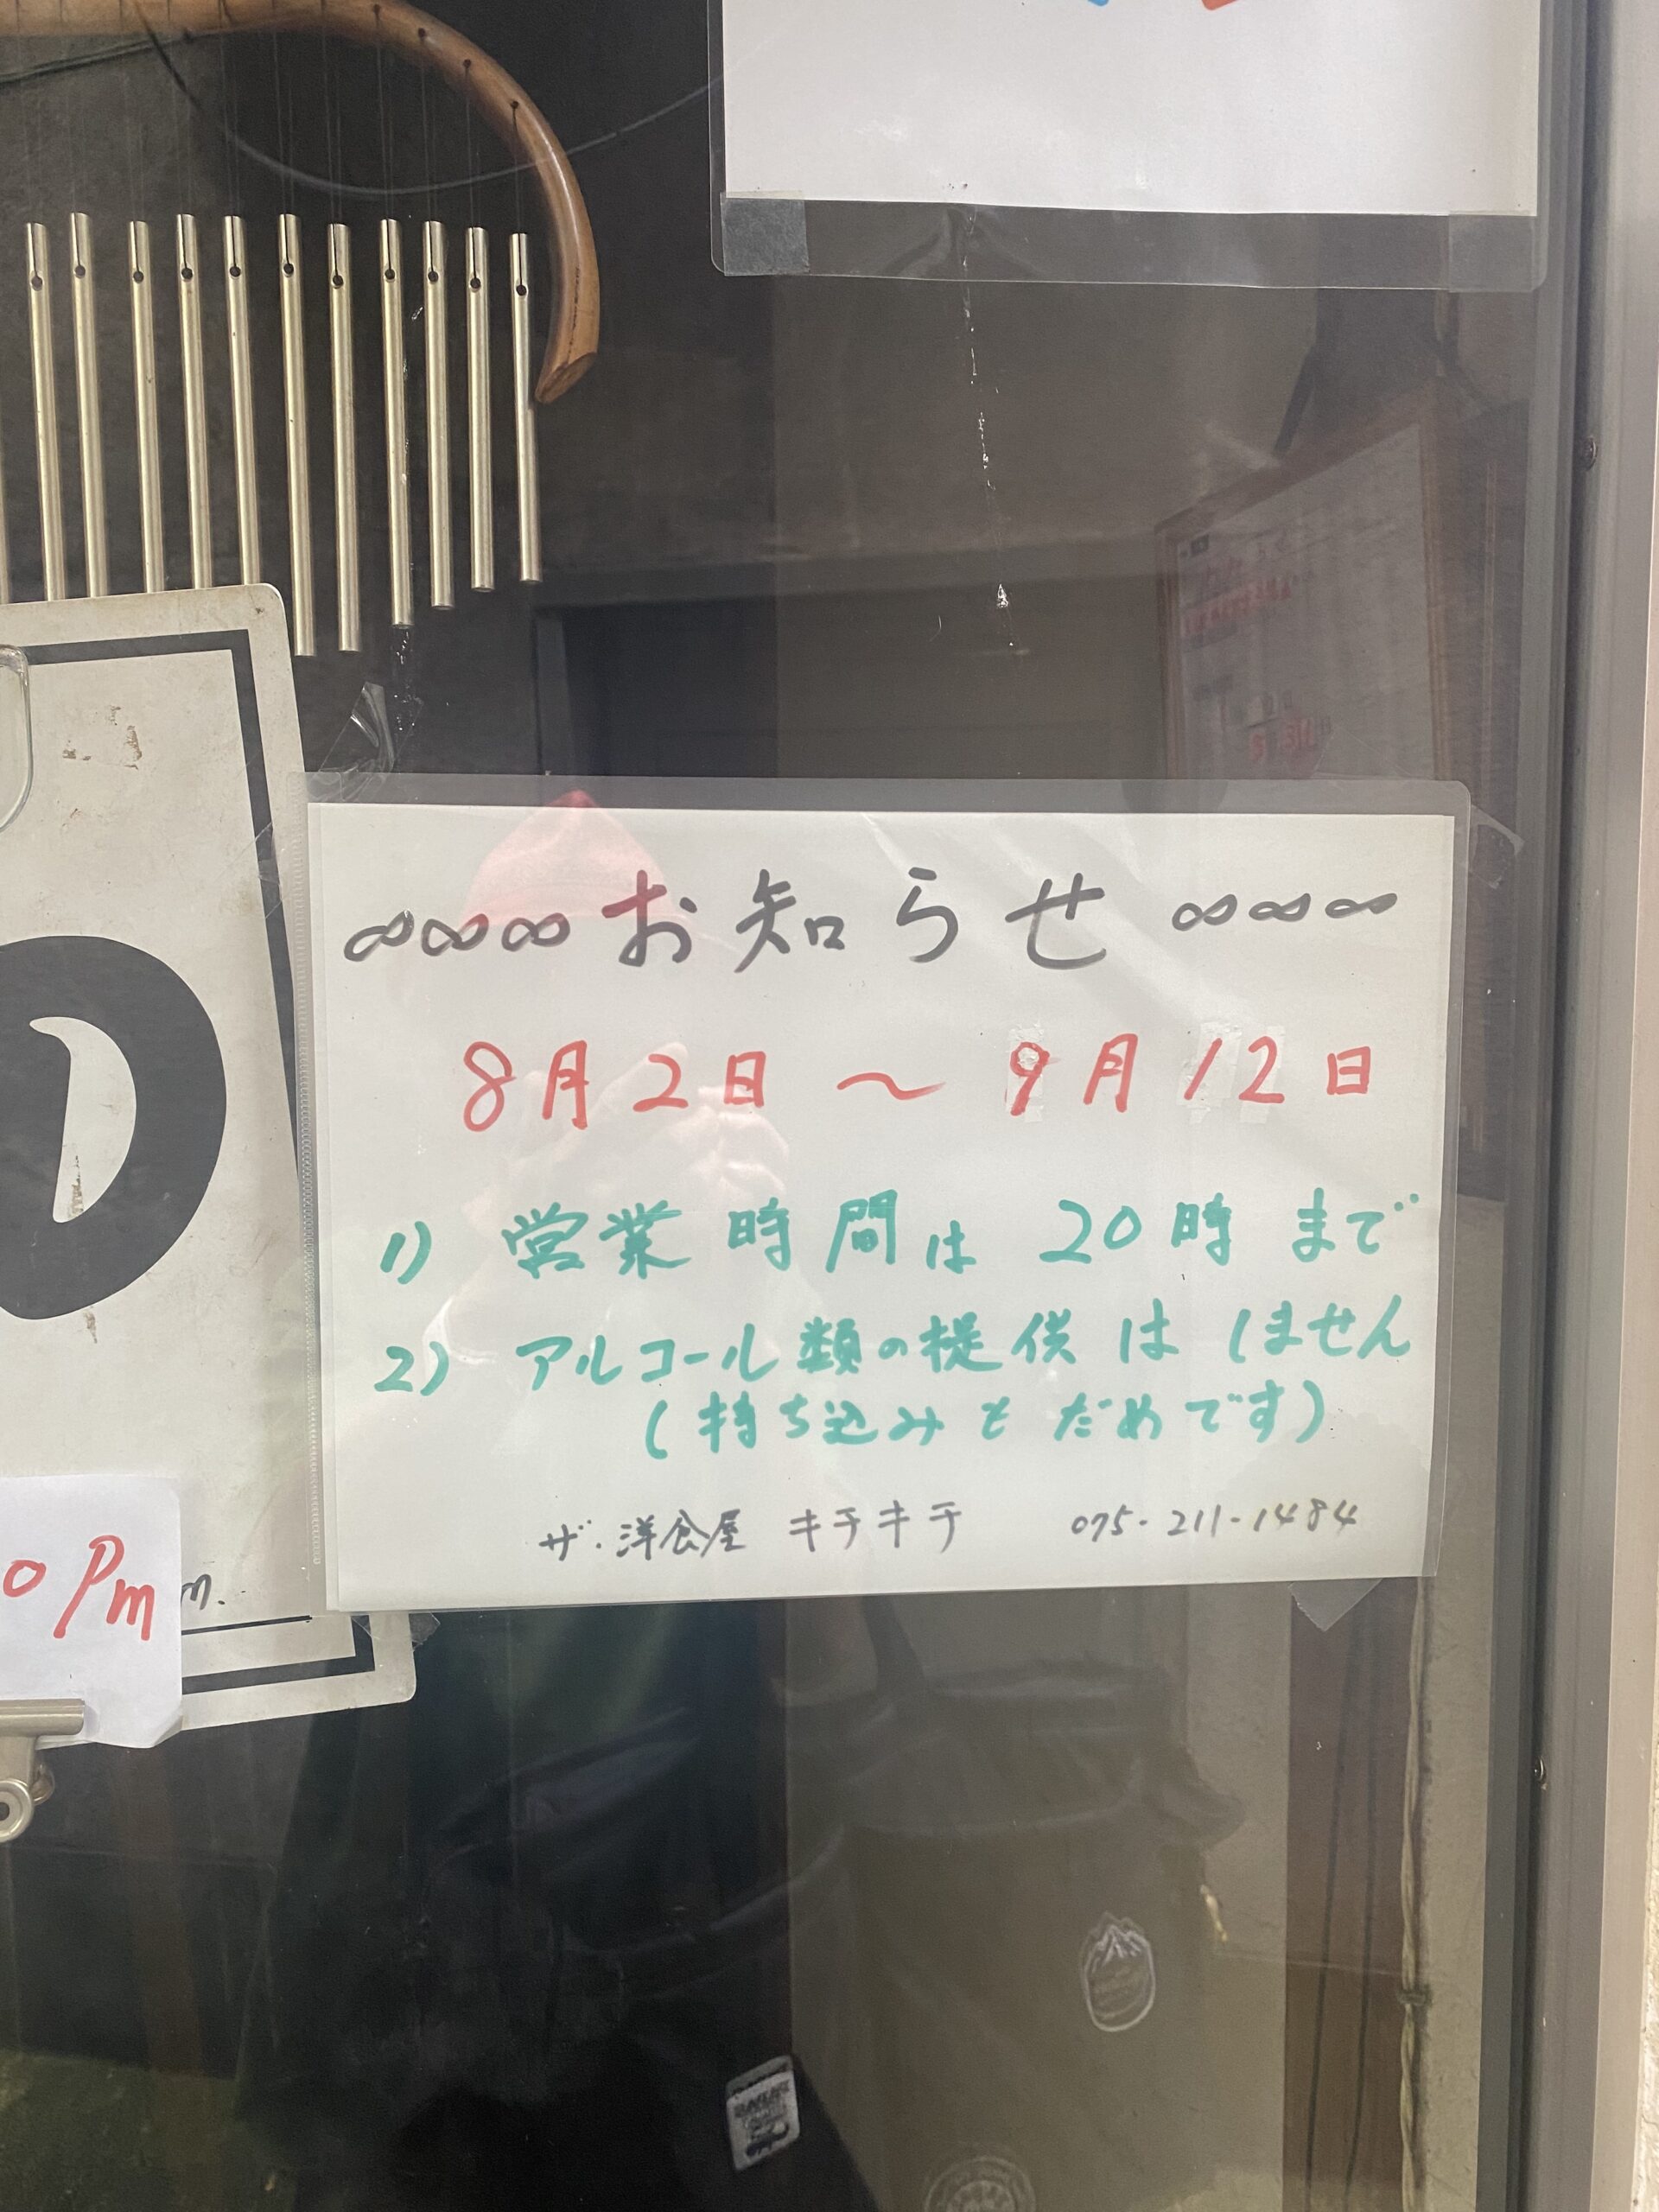 ∞∞∞お知らせ∞∞∞
8月2日 〜 9月12日
1) 営業時間は 20時まで
2) アルコール類の提供はしません
(持ち込みもだめです)
ザ・洋食屋 キチキチ 075-211-1484
0 Pm
m.